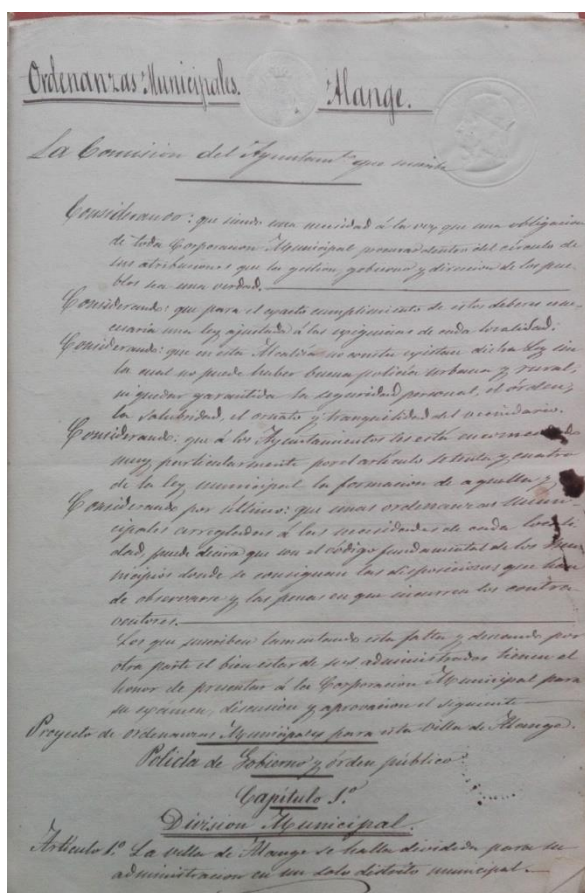 Ordenanzas Municipales. Alange.
La Comision del Ayuntamto que suscribe
Considerando: que siendo una necesidad á la vez que una obligacion
de toda Corporacion Municipal procurar dentro del círculo de
sus atribuciones que la gestion, gobierno y direccion de los pue-
blos sea una verdad.
Considerando: que para el exacto cumplimiento de estos deberes es ne-
cesaria una ley ajustada á las exigencias de cada localidad.
Considerando: que en esta Alcaldía no consta exista dicha Ley sin
la cual no puede haber buena policía urbana y rural,
ni quedar garantida la seguridad personal, el órden,
la salubridad, el ornato y tranquilidad del vecindario.
Considerando: que á los Ayuntamientos les está encomendado
muy particularmente por el artículo setenta y cuatro
de la ley municipal la formacion de aquellas y
Considerando por último: que unas ordenanzas Muni-
cipales arregladas á las necesidades de cada locali-
dad, puede decirse que son el código fundamental de los Mu-
nicipios donde se consignan las disposiciones que han
de observarse y las penas en que incurren los contra-
ventores.
Los que suscriben lamentando esta falta y deseando por
otra parte el bien estar de sus administrados tienen el
honor de presentar á la Corporacion Municipal para
su exámen, discusion y aprovacion el siguiente
Proyecto de ordenanzas Municipales para esta Villa de Alange.
Policía de Gobierno y órden público
Capítulo 1.º
Division Municipal.
Artículo 1.º La villa de Alange se halla dividida para su
administracion en un solo distrito municipal.